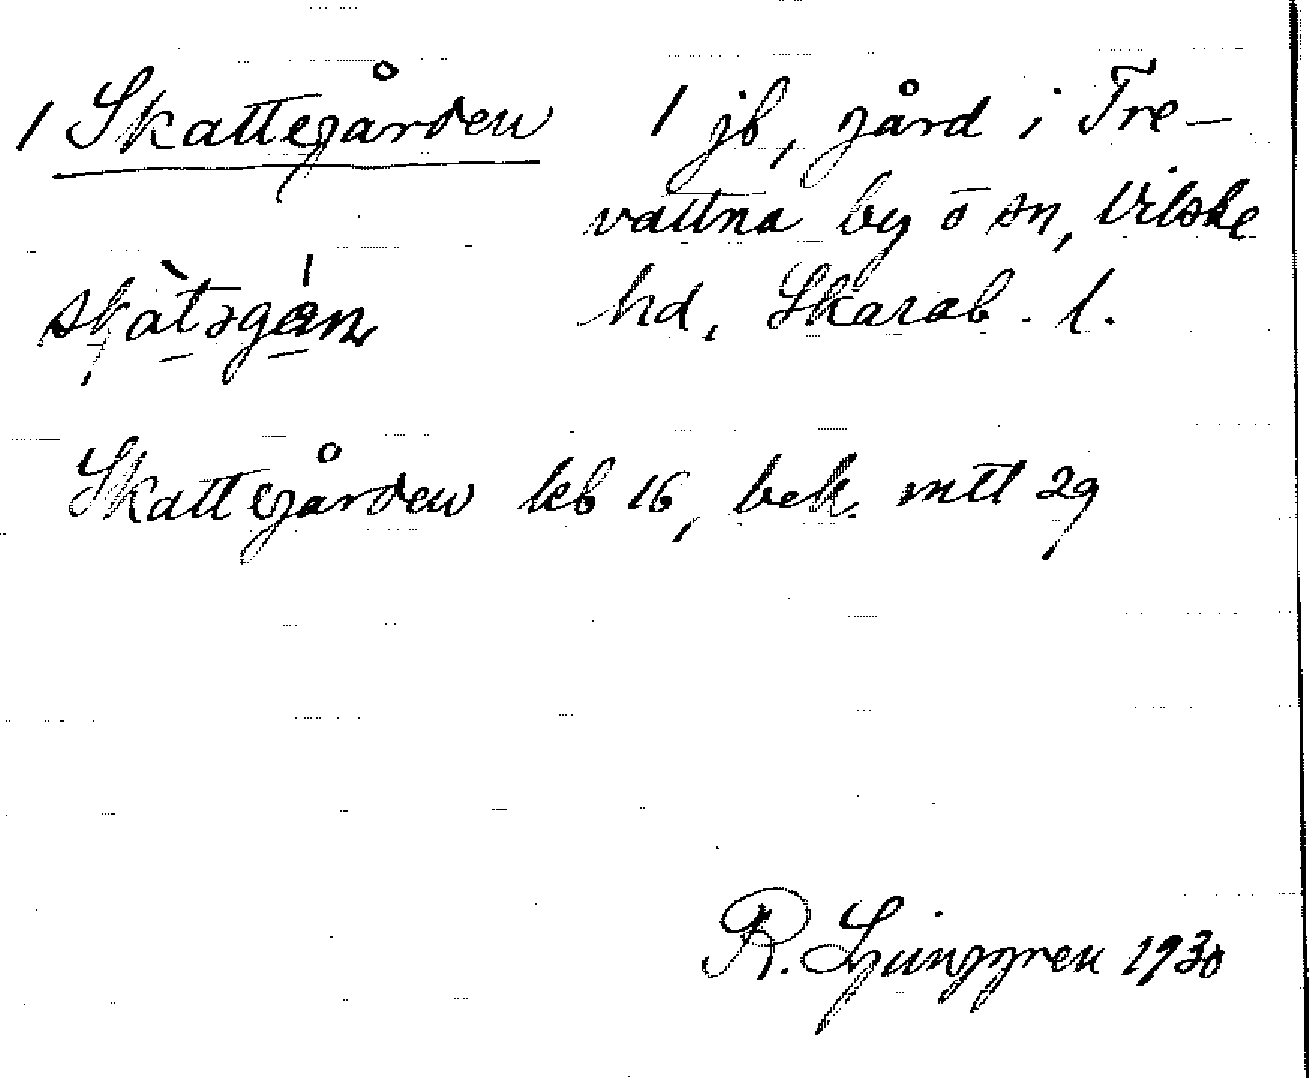 1 Skattegården 1 jb, gård i Tre-
vattna by o sn, Vilske
skàtəgán hd, Skarab. l.
Skattegården leb 16, bek. mtl 29
R. Ljunggren 1930